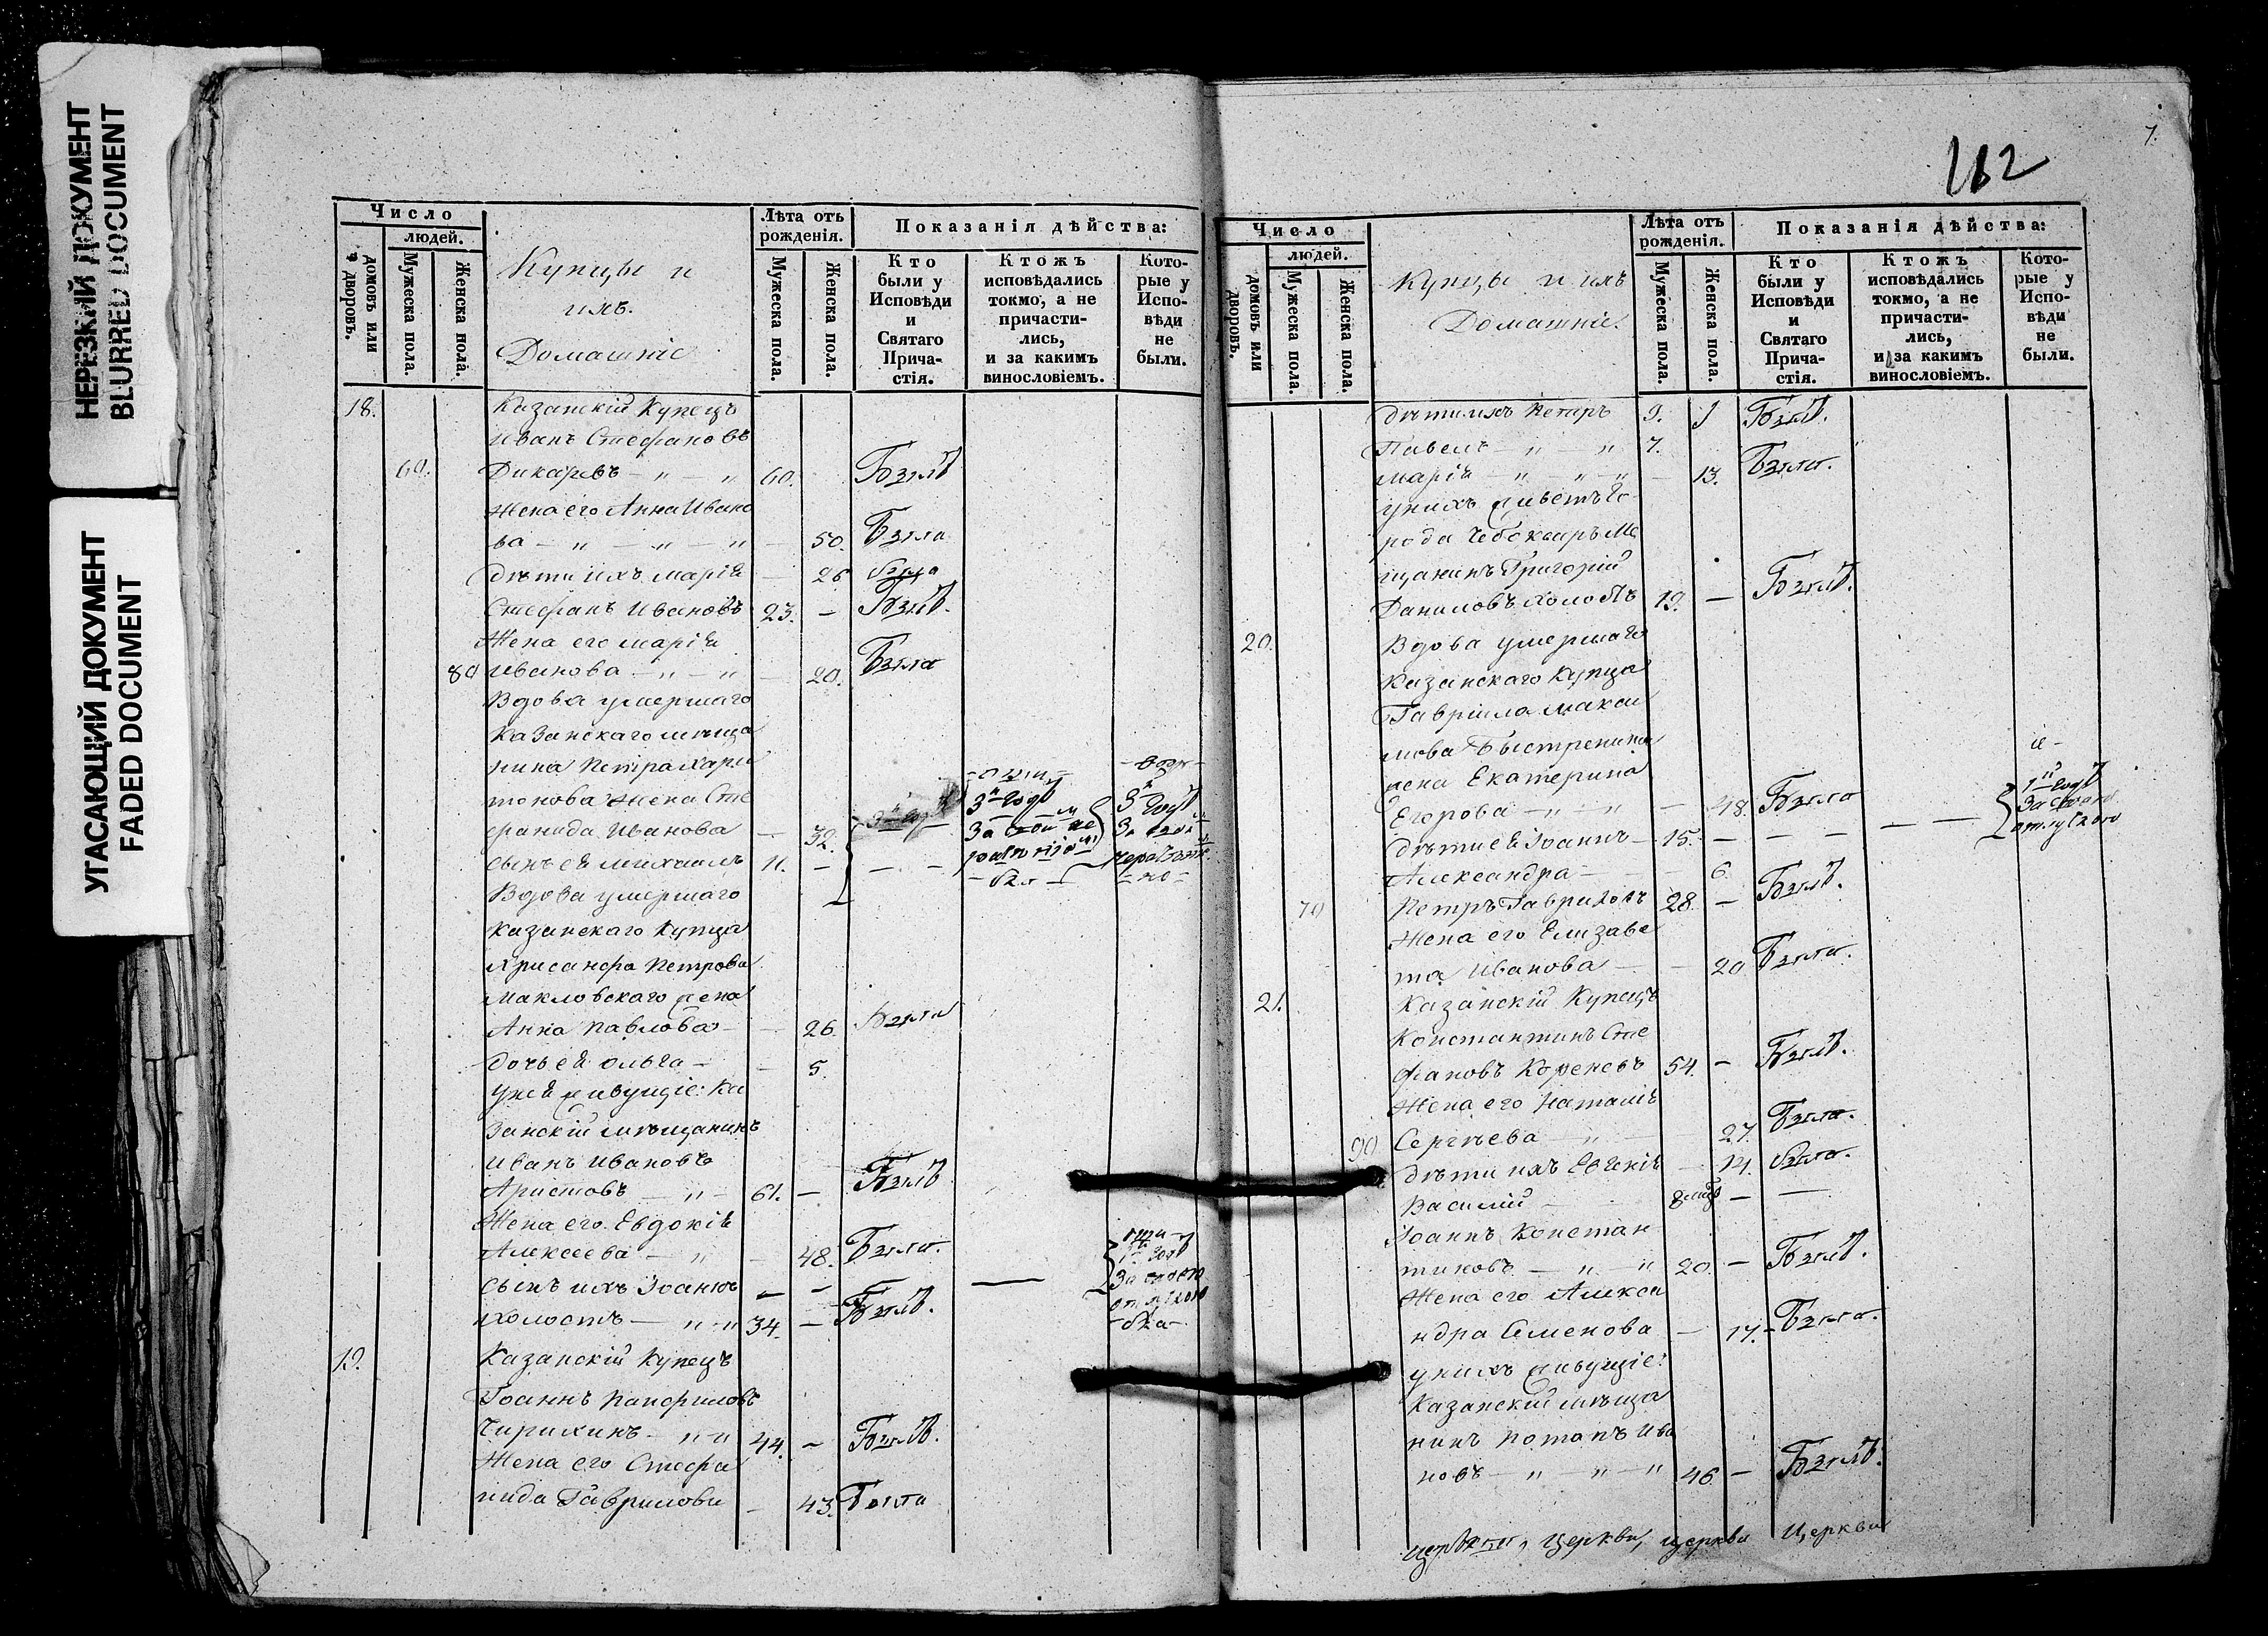 НЕРЕЗКИЙ ДОКУМЕНТ
BLURRED DOCUMENT
УГАСАЮЩИЙ ДОКУМЕНТ
FADED DOCUMENT
Число
людей.
домовъ или дворовъ.
Мужеска пола.
Женска пола.
Купцы и
ихъ.
Домашніе
Лѣта отъ рожденія.
Мужеска пола.
Женска пола.
Показанія дѣйства:
Кто были у Исповѣди и Святаго Прича-стія.
Ктожъ исповѣдались токмо, а не причасти-лись, и за какимъ винословіемъ.
Кото-рые у Испо-вѣди не были.
18. Казанскій Купецъ
Иванъ Стефановъ
60. Дикаревъ — " — " 60. Былъ
Жена его Анна Ивано
ва — " — " — " — 50. Была
Дѣти ихъ Марія — 26 была
Стефанъ Ивановъ 23. — Былъ.
Жена его Марія
80 Иванова — " — " — 20. Была
Вдова умершаго
Казанскаго мѣща
нина Петра Хари
тонова Жена Сте
фанида Иванова — 32.
3й годъ
За
3й годъ
За
сынъ ея Михаилъ 11. —
Вдова умершаго
Казанскаго Купца
Хрисанфа Петрова
Макловскаго жена
Анна Павлова — — 26. Была
дочь ея Ольга — — 5.
У нея живущіе: Ка
занскій мѣщанинъ
Иванъ Ивановъ
Аристовъ — " — 61. — Былъ
Жена его Евдокія
Алексеева — " — 48. Была.
Сынъ ихъ Іоаннъ — —
холостъ — " — " 34. — Былъ.
1й годъ
За
19. Казанскій Купецъ
Іоаннъ Панфиловъ
Чирихинъ — " — " 44. — Былъ.
Жена его Стефа
нида Гаврилова — 43. Была
7.
162
Число
людей.
домовъ или дворовъ.
Мужеска пола.
Женска пола.
Купцы и ихъ
Домашніе.
Лѣта отъ рожденія.
Мужеска пола.
Женска пола.
Показанія дѣйства:
Кто были у Исповѣди и Святаго Прича-стія.
Ктожъ исповѣдались токмо, а не причасти-лись, и за какимъ винословіемъ.
Кото-рые у Испо-вѣди не были.
Дѣти ихъ Петръ 9. Былъ.
Павелъ — " — " 7.
Марія — " — " — " — 13. Была.
У нихъ живетъ Го
рода Чебоксаръ Ме
щанинъ Григорій
Даниловъ холостъ 19. — Былъ.
20. Вдова умершаго
Казанскаго Купца
Гавріила Макси
мова Быстренина
жена Екатерина
Егорова — " — " — 48. Была
1й годъ
За
Дѣти ея Іоаннъ — 15. — — — — —
Александра — — 6.
70 Петръ Гавриловъ 28. — Былъ.
Жена его Елизаве
та Иванова — — 20 Была.
21. Казанскій Купецъ
Константинъ Сте
фановъ Кореневъ 54. — Былъ.
Жена его Наталія
90 Сергѣева — " — 27. Была.
Дѣти ихъ Евгенія — 14. была.
Василій — 8 —
Іоаннъ Констан
тиновъ — " — " 20. — Былъ.
Жена его Алекса
ндра Семенова — 17. — Была.
У нихъ живущіе:
Казанскій мѣща
нинъ Потапъ Ива
новъ — " — " — " 46. — Былъ.
Церкви, церкви Церкви